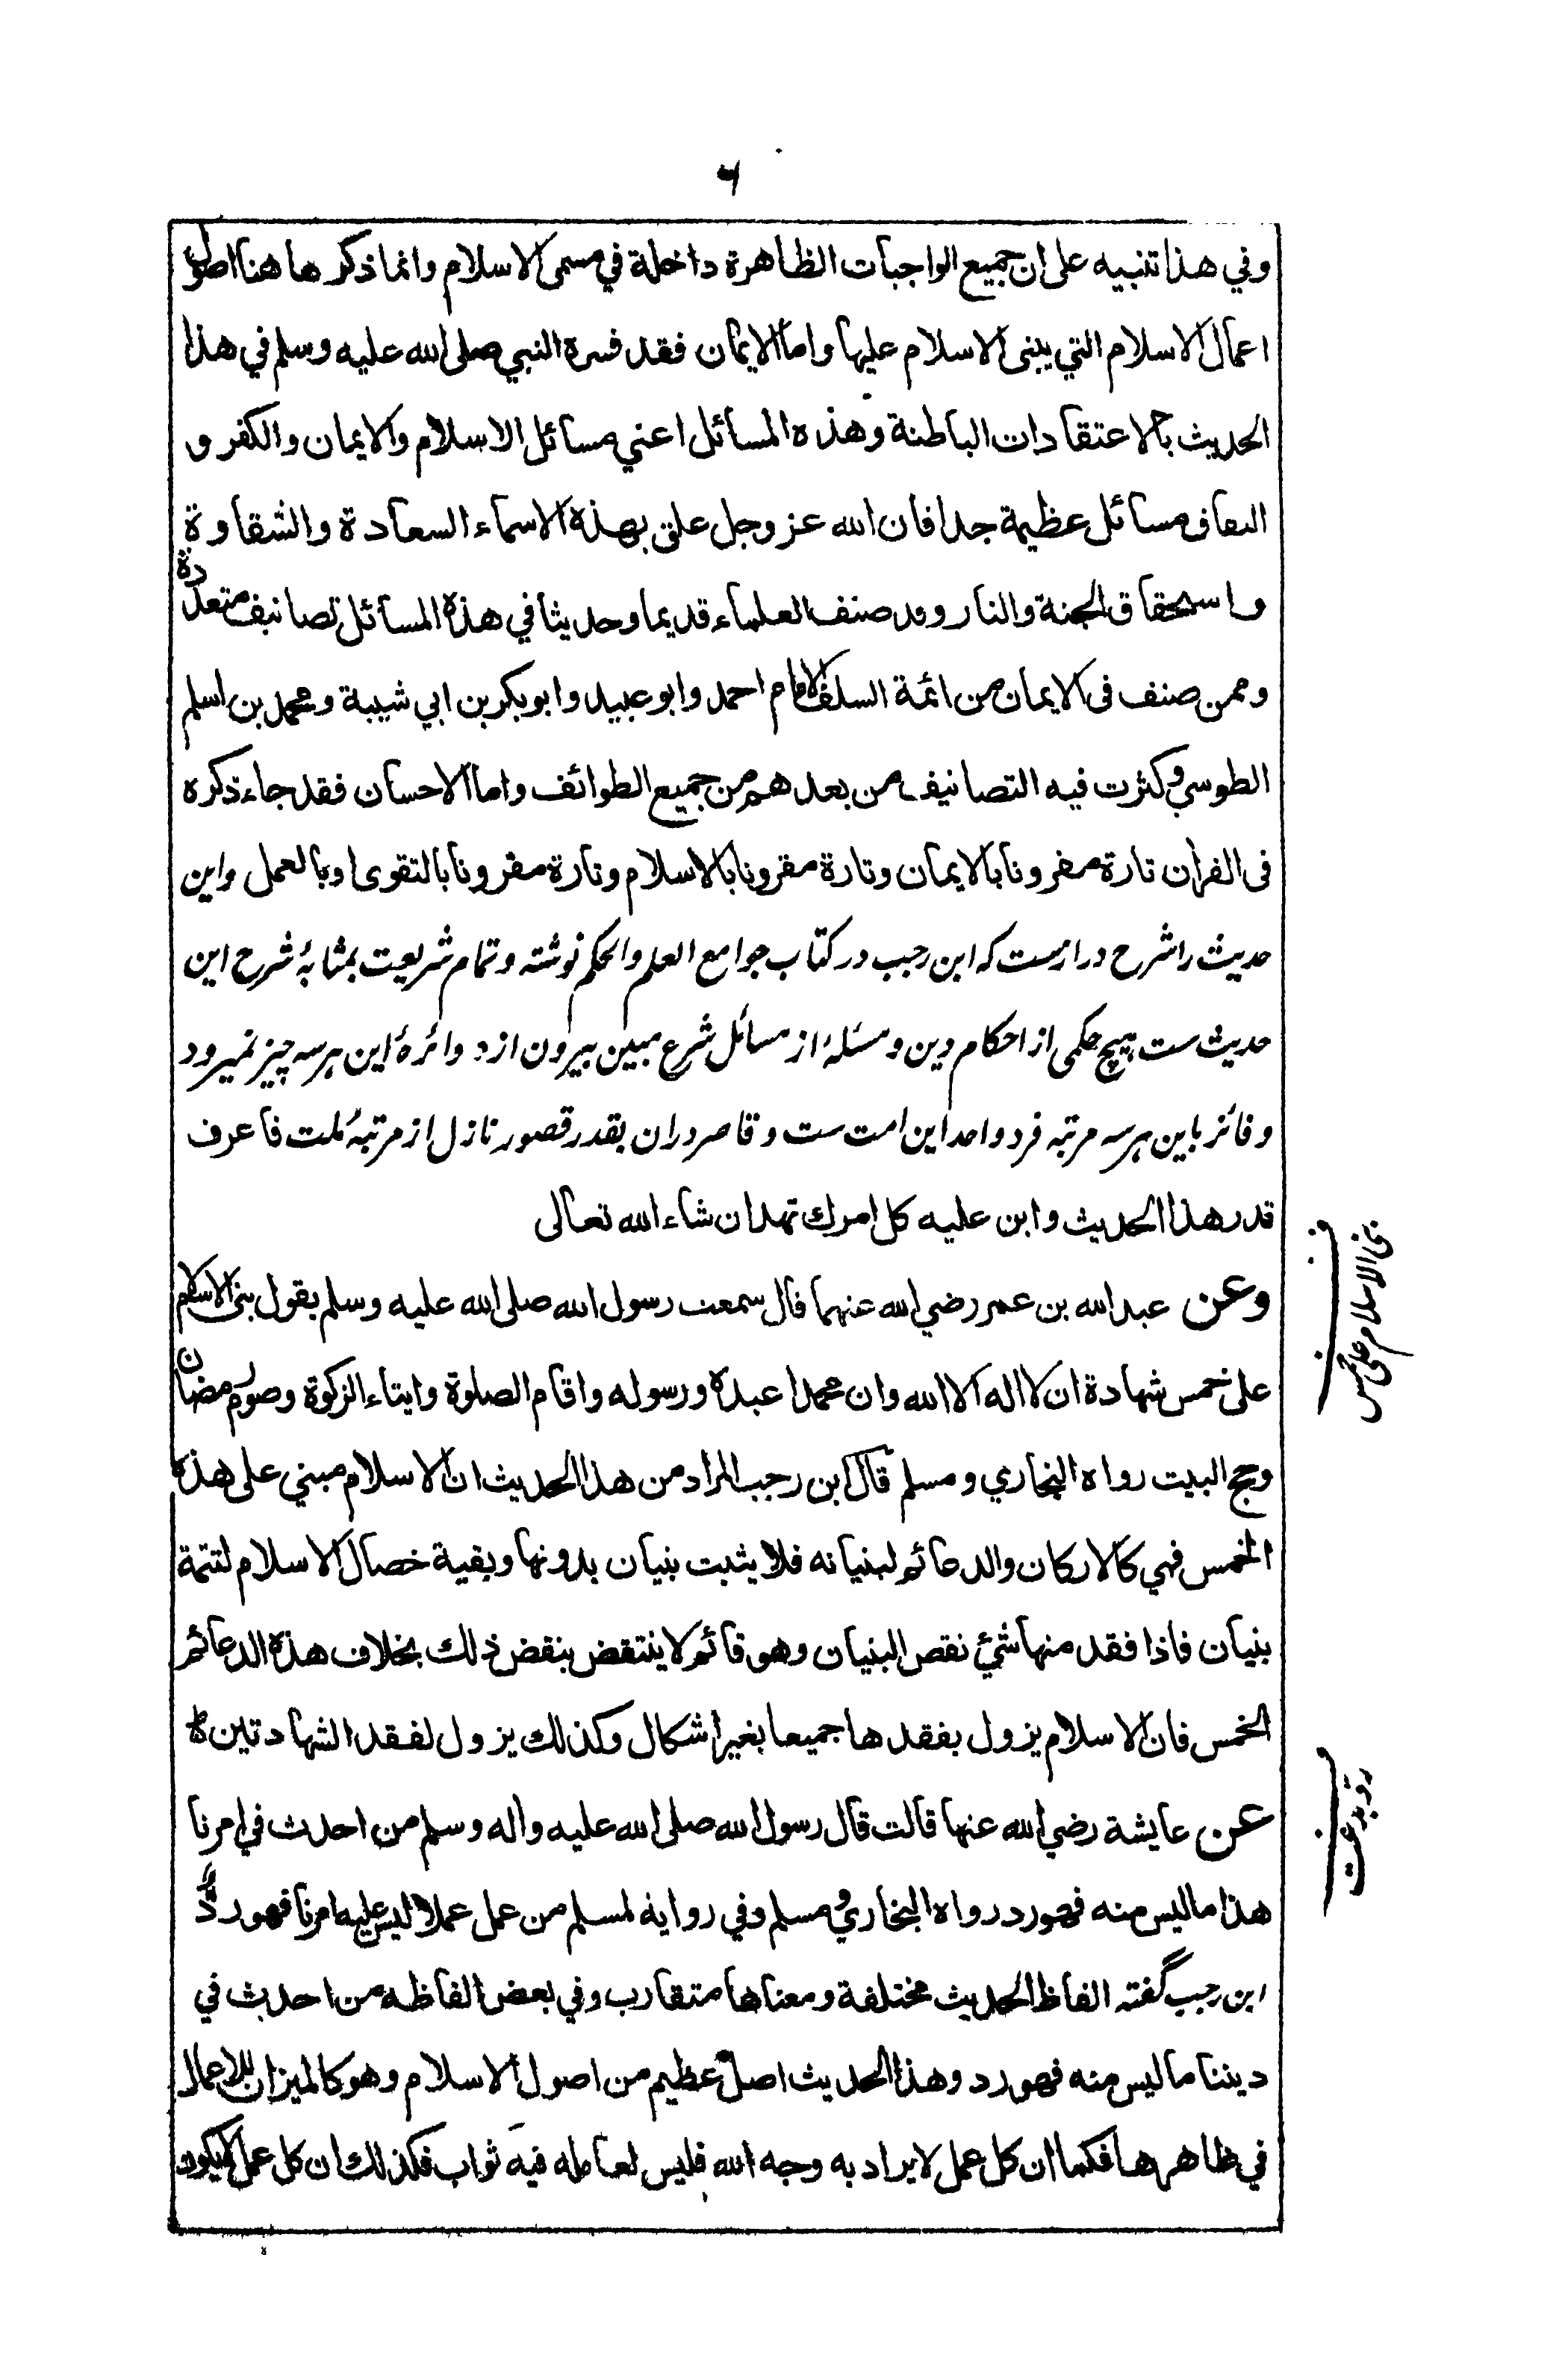 ۶
وفي هذا تنبيه على ان جميع الواجبات الظاهرة داخلة في مسمى الاسلام وانما ذكر ها هنا اصول
اعمال الاسلام التي يبنى الاسلام عليها واما الايمان فقد فسره النبي صلى الله عليه وسلم في هذا
الحديث بالاعتقادات الباطنة وهذه المسائل اعني مسائل الاسلام والايمان والكفر و
النفاق مسائل عظيمة جدا فان الله عز وجل علق بهذه الاسماء السعادة والشقاوة
واستحقاق الجنة والنار وقد صنف العلماء قديما وحديثا في هذه المسائل تصانيف متعددة
وممن صنف فى الايمان من ائمة السلف الامام احمد وابو عبيد وابو بكر بن ابي شيبة ومحمد بن اسلم
الطوسي وكثرت فيه التصانيف من بعدهم من جميع الطوائف واما الاحسان فقد جاء ذكره
فى القرأن تارة مقرونا بالايمان وتارة مقرونا بالاسلام وتارة مقرونا بالتقوى او بالعمل واین
حدیث را شرح درازست که ابن رجب در کتاب جوامع العلم والحکم نوشته و تمام شریعت بمثابۀ شرح این
حدیث ست هیچ حکمی از احکام دین و مسئلۀ از مسائل شرع مبین بیرون از دائرۀ این هر سه چیز نمیرود
و فائز باین هر سه مرتبه فرد واحد این امت ست و قاصر دران بقدر قصور نازل از مرتبۀ ملت فاعرف
قدر هذا الحديث وابن عليه كل امرك تهد ان شاء الله تعالى
وعن عبد الله بن عمر رضي الله عنهما قال سمعت رسول الله صلى الله عليه وسلم يقول بني الاسلام
على خمس شهادة ان لا اله الا الله وان محمدا عبده ورسوله واقام الصلوة وايتاء الزكوة وصوم رمضان
وحج البيت رواه البخاري ومسلم قال ابن رجب المراد من هذا الحديث ان الاسلام مبني على هذه
الخمس فهي كالاركان والدعائم لبنيانه فلا يثبت بنيان بدونها وبقية خصال الاسلام لتتمة
بنيان فاذا فقد منها شيئ نقص البنيان وهو قائم لا ينتقض بنقض ذلك بخلاف هذه الدعائم
الخمس فان الاسلام يزول بفقدها جميعا بغير اشكال وكذلك يزول لفقد الشهادتين ه
عن عايشة رضي الله عنها قالت قال رسول الله صلى الله عليه واله وسلم من احدث في امرنا
هذا ما ليس منه فهو رد رواه البخاري ومسلم وفي رواية لمسلم من عمل عملا ليس عليه امرنا فهو ردٌّ
ابن رجب گفته الفاظ الحديث مختلفة ومعناها متقارب وفي بعض الفاظه من احدث في
ديننا ما ليس منه فهو رد وهذا الحديث اصل عظيم من اصول الاسلام وهو كالميزان للاعمال
في ظاهرها فكما ان كل عمل لا يراد به وجه الله فليس لعامله فيه ثواب فكذلك ان كل عمل لايكون
ف
بنى الاسلام على خمس
ف
رد بدعت